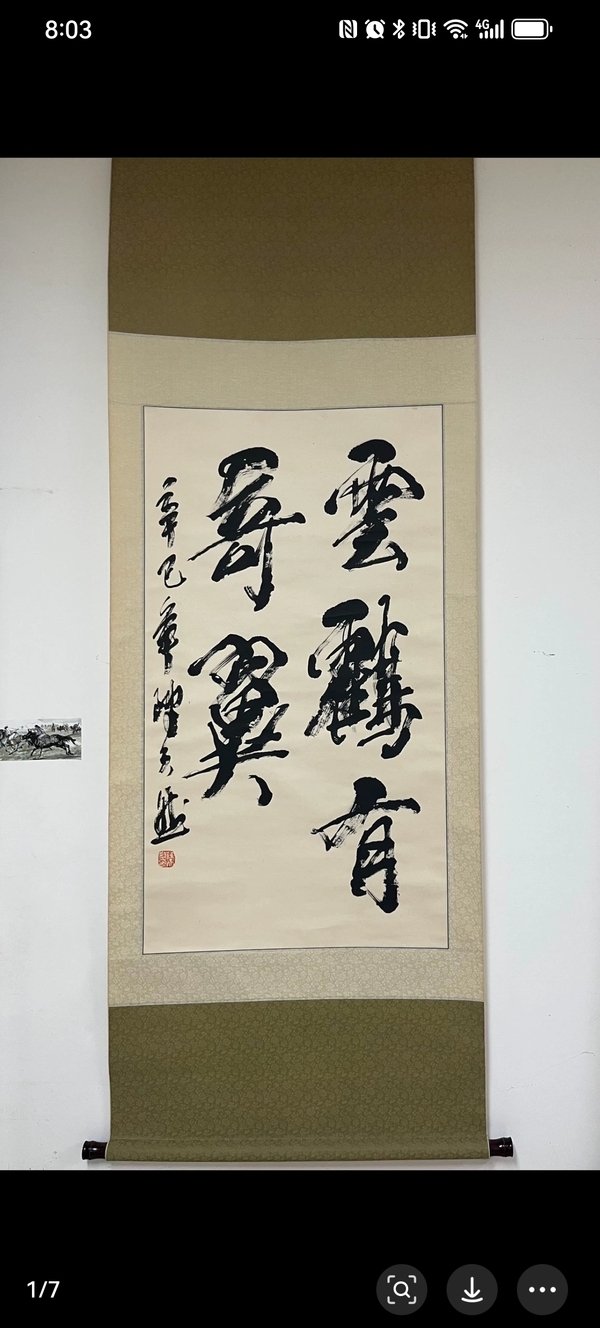 8:03
4G
雲鶴有
奇翼
辛巳年
1/7